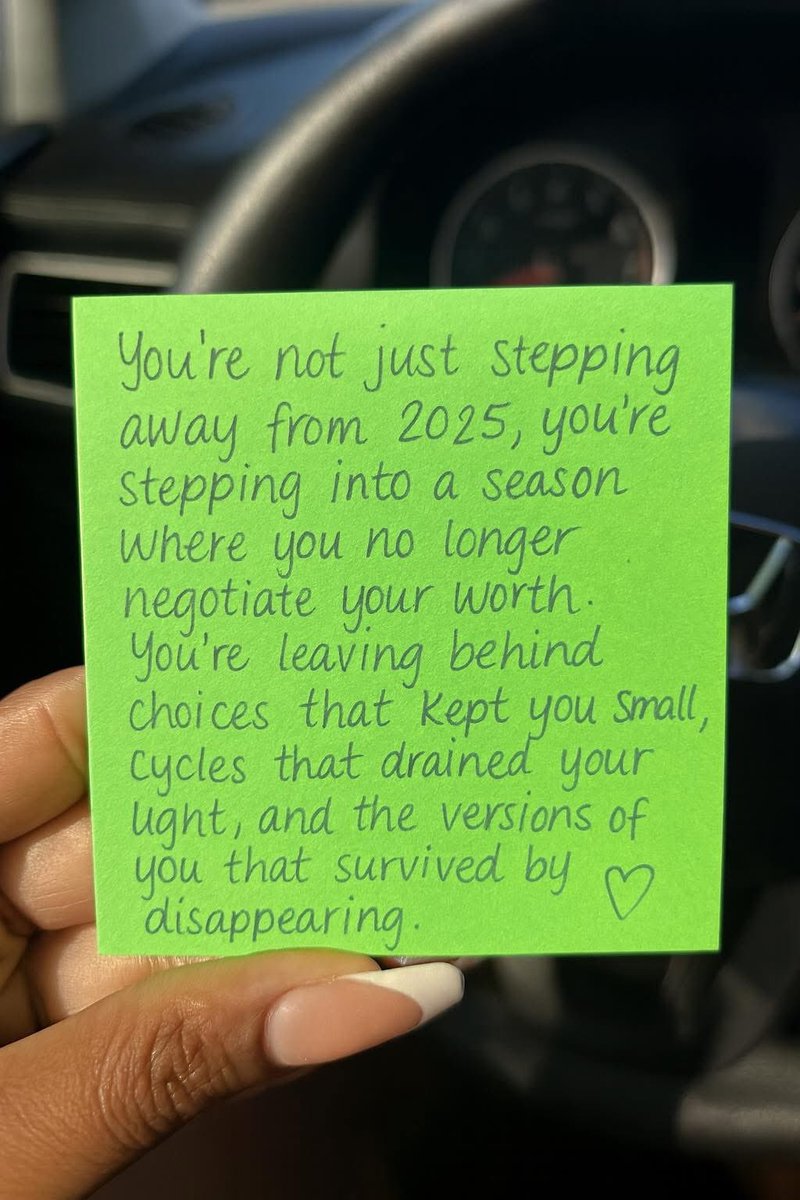 You're not just stepping
away from 2025, you're
stepping into a season
where you no longer
negotiate your worth.
You're leaving behind
choices that kept you small,
cycles that drained your
light, and the versions of
you that survived by
disappearing.